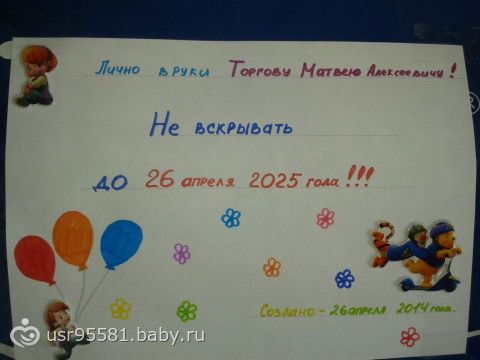 Лично в руки Торгову Матвею Алексеевичу!
Не вскрывать
до 26 апреля 2025 года!!!
Создано - 26 апреля 2014 года.
usr95581.baby.ru